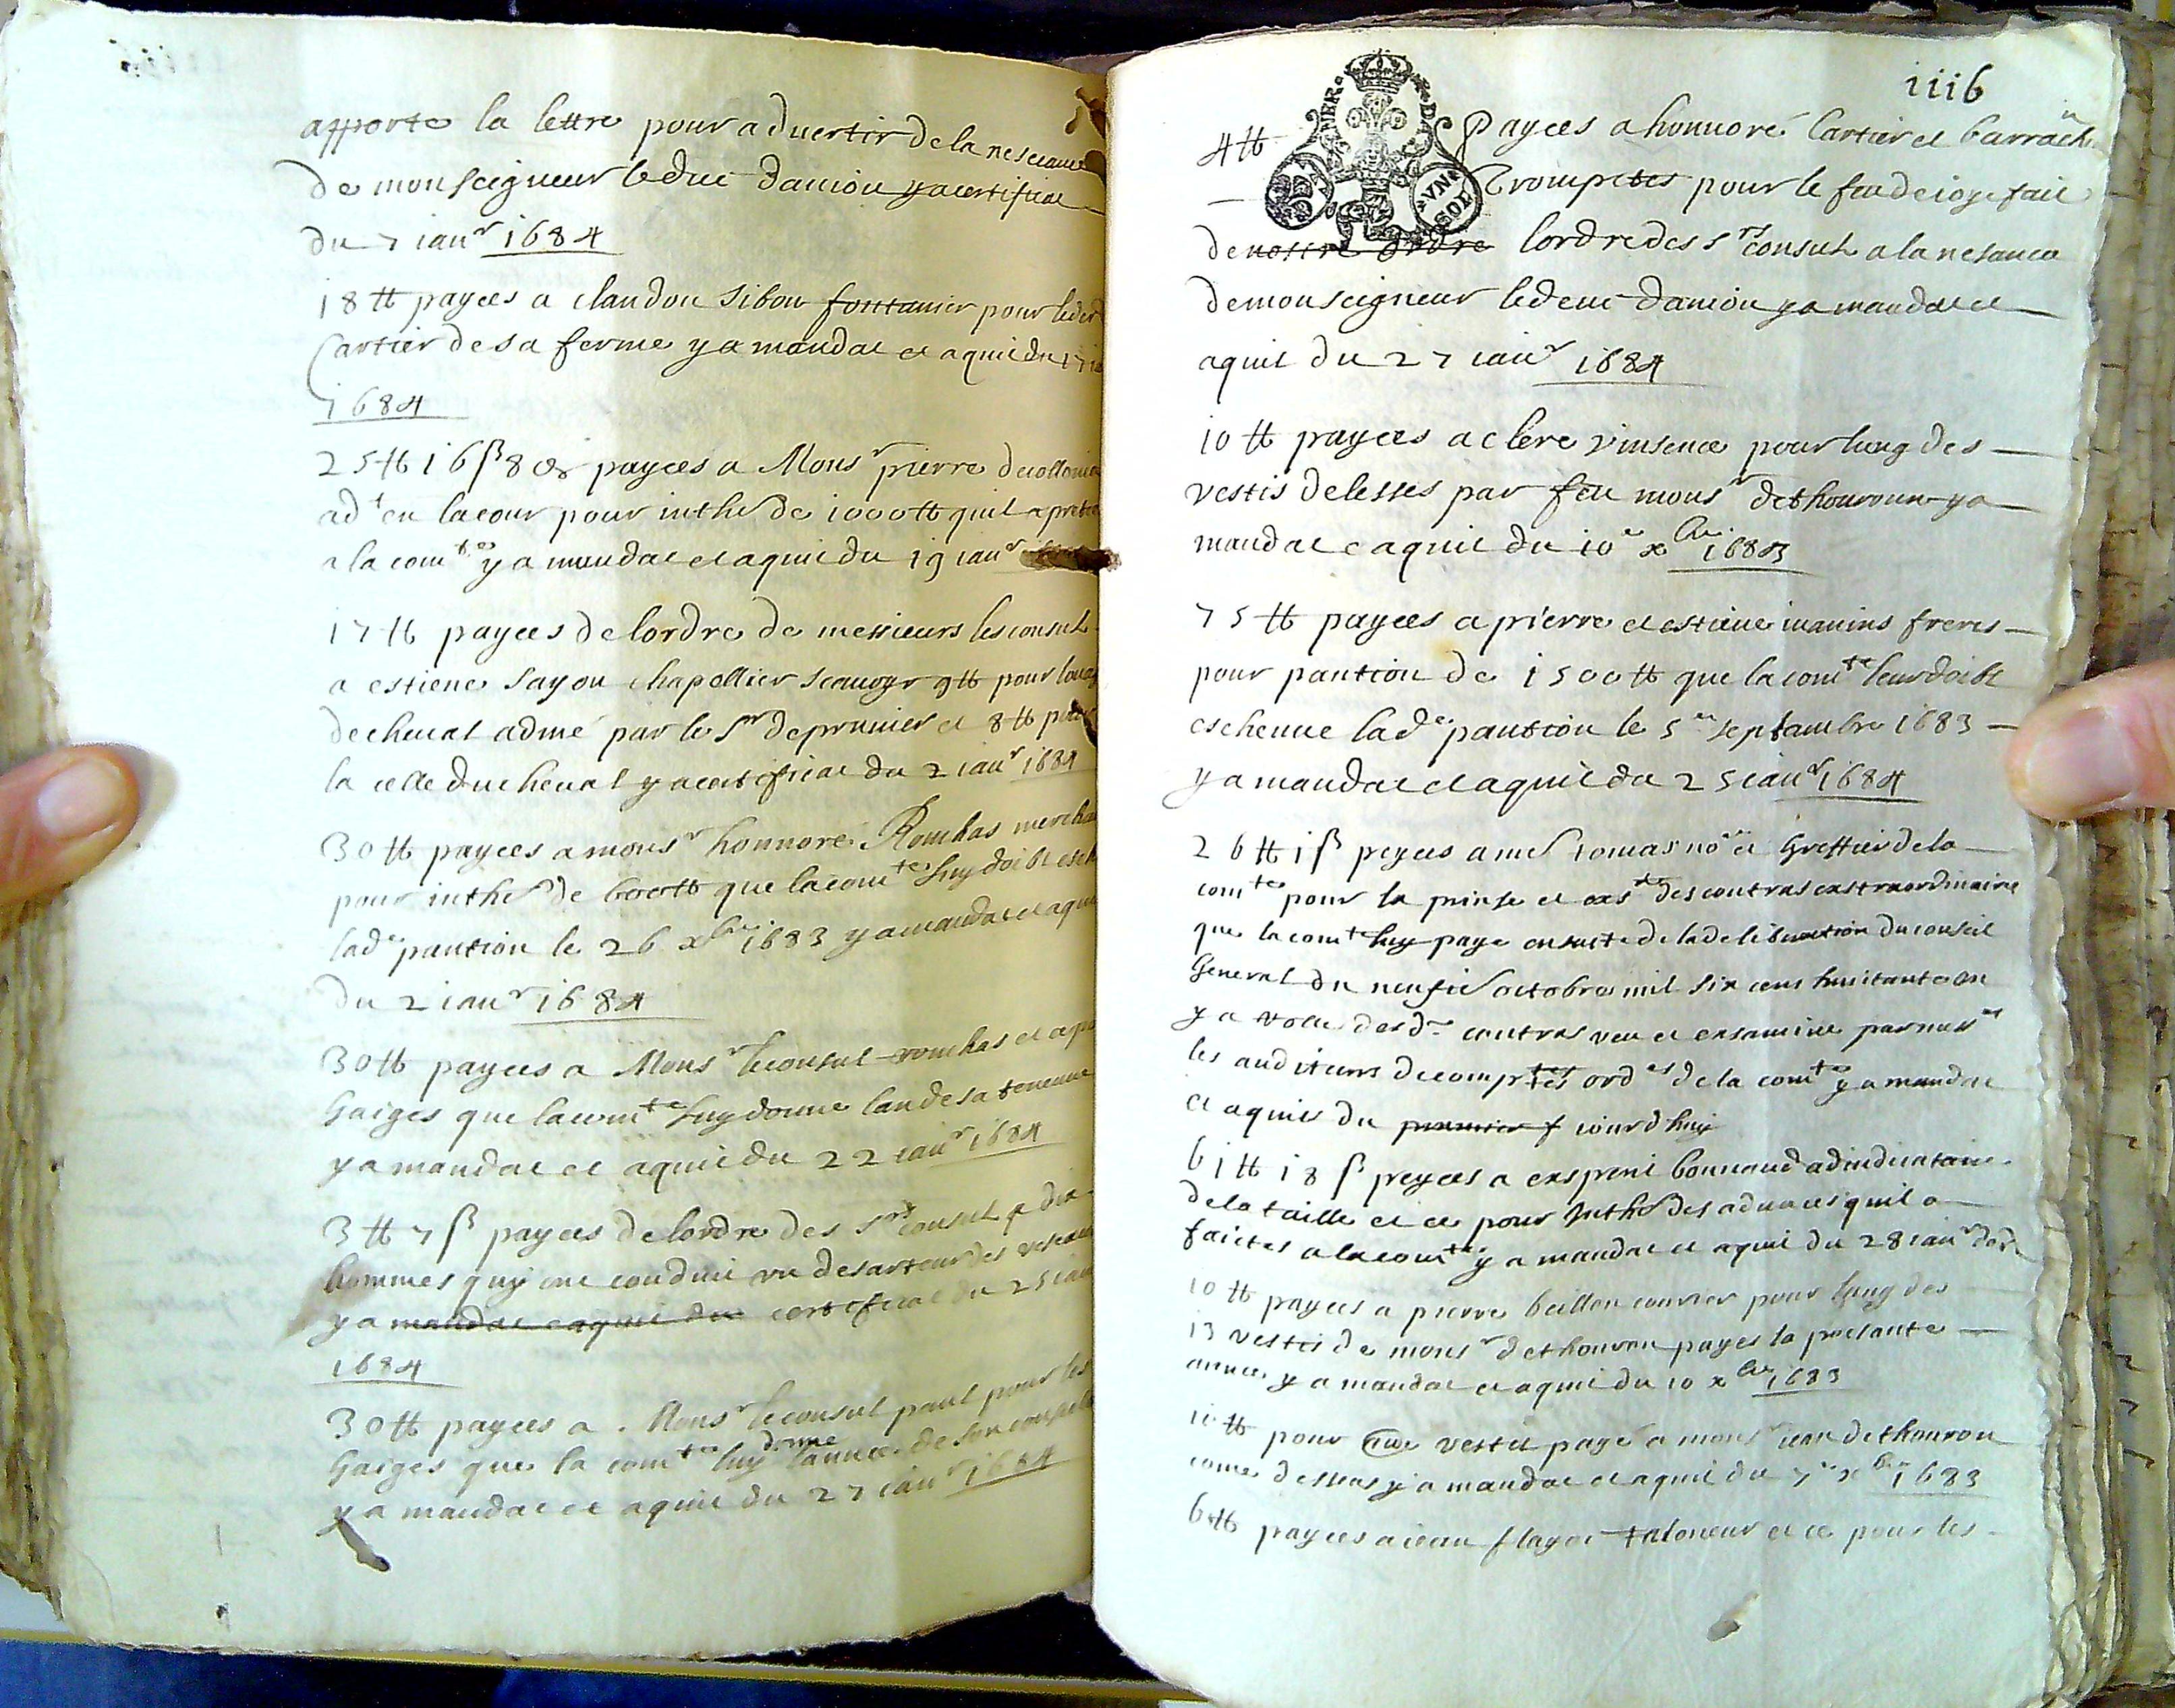 apporte la lettre pour aduertir de la nesceance
de monseigneur le duc daniou y a certificat
du 7 ianr 1684
18 tt payees a claudou sibou fontanier pour le der
cartier de sa ferme y a mandat et aquit du 17 ia
1684
25 tt 16 ß 8 d payees a Monsr pierre decollonia
adt en la cour pour inthes de 1000 tt quil a preté
a la comte y a mandat et aquit du 19 ianr
17 tt payees de lordre de messieurs les consuls
a estiene sayou chapellier scauoyr 9 tt pour louag
de cheual admé par le sr de prunier et 8 tt pour
la celle du cheual y a certificat du 2 ianr 1684
30 tt payees a monsr honnoré Romhas mercha
pour inthes de 600 tt que la comte luy doibt esch
lade pantion le 26 xbre 1683 y a mandat et aquit
du 2 ianr 1684
30 tt payees a Monsr le consul romhas et a
Gaiges que la comte luy donne lan de sa
y a mandat et aquit du 22 ianr 1684
3 tt 7 ß payees de lordre des srs consuls a dix
hommes quy ont conduit vn desarteur des veseaux
y a mandat e aquit du certificat du 25 ian
1684
30 tt payees a Monsr le consul paul pour les
Gaiges que la comte luy donne lannee de son consulat
y a mandat et aquit du 27 ianr 1684
iii6
GNER. D
VN SOL
4 tt Payees a honnoré Cartier et barrach
Trompetes pour le feu de ioye fait
de nostre ordre lordre des srs consuls a la nesance
de monseigneur le deuc daniou y a mandat et
aquit du 27 ianr 1684
10 tt payees a clere vinsence pour lung des
vestis delesses par feu monsr dethouroun y a
mandat e aquit du 10e xbre 1683
75 tt payees a pierre et estiene iuanins freres
pour pantion de 1500 tt que la comte leur doibt
escheuue lade pantion le 5e septambre 1683
y a mandat et aquit du 25 ianr 1684
26 tt 1 ß payees a me tomas nore et Greffier de la
comte pour la prinse et exs des contras extraordinaire
que la comte luy paye ensuite de la deliberation du conseil
General du neufie octobre mil six cens huitante
y a rolle desds contras veu et ensamine par mess
les auditeurs de comptes ordes de la comte y a mandat
et aquit du premier f iourdhuy
61 tt 18 ß payees a bonnaud adiudicataire
de la taille et ce pour Inthes des aduances quil a
faictes a la comte y a mandat et aquit du 28 ianr
10 tt payees a pierre beillon couurier pour lung des
13 vestis de monsr dethouron payes la presante
annee y a mandat et aquit du 10 xbre 1683
10 tt pour vestit payé a monsr iean dethouron
come dessus y a mandat et aquit du 7e xbre 1683
6 tt payees a iean flayoc taloneur et ce pour les